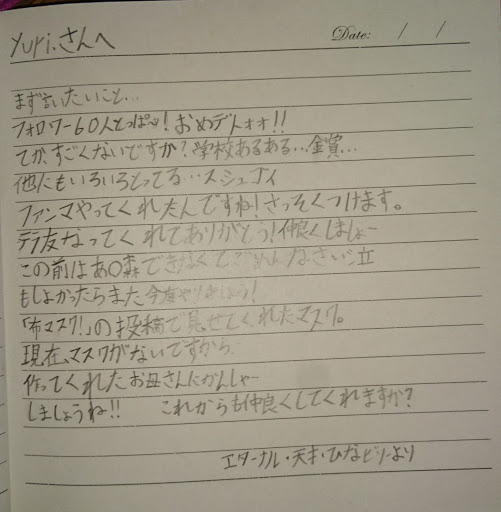 yuri.さんへ
Date: / /
まず言いたいこと…
フォロワー60人とっぱ〜!おめデトォォ!!
てか、すごくないですか?学校あるある…金賞…
他にもいろいろとってる…スシュゴイ
ファンマやってくれたんですね!さっそくつけます。
デラ友なってくれてありがとう!仲良くしましょー
この前はあ〇森できなくてごめんなさい泣
もしよかったらまた今度やりましょう!
「布マスク!」の投稿で見せてくれたマスク。
現在、マスクがないですから
作ってくれたお母さんにかんしゃー
しましょうね!! これからも仲良くしてくれますか?
エターナル・天才・ひなビリーより